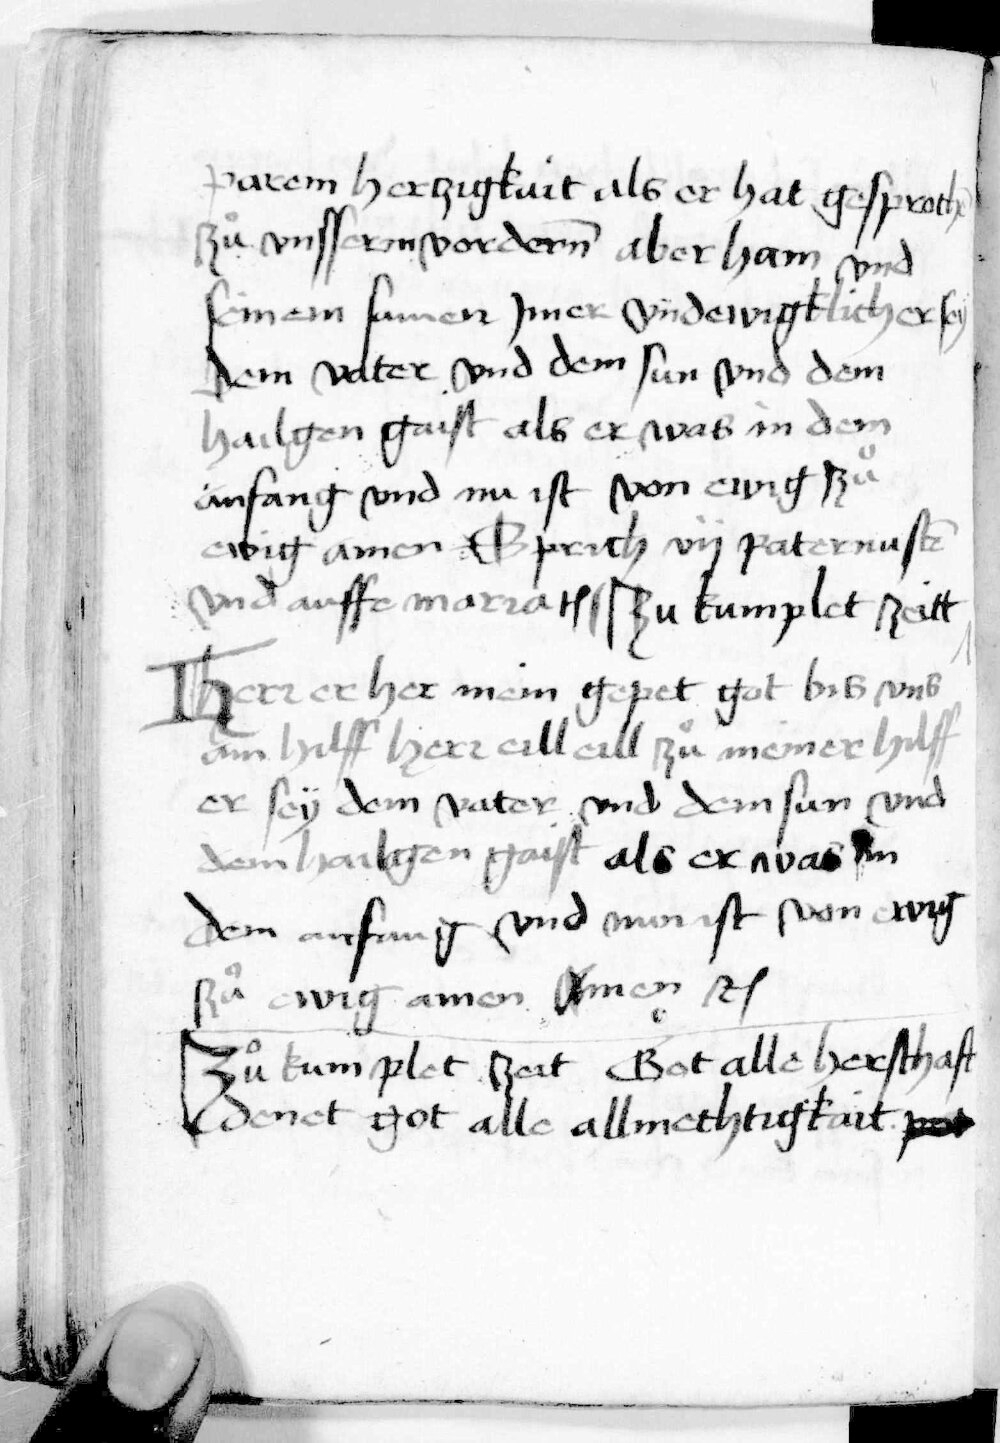 parem herzigkait als er hat gesproch̄
zů vnsserm vordern̄ aber ham vnd
seinem samen Jmer vnd ewigklich er sey
dem vater vnd dem sun vnd dem
hailgen gaist als er was in dem
anfang vnd nu ist von ewig zů
ewig amen Sprich vij paternust̄
vnd auffe maria zu kumplet zeitt
herr er her mein gepet got bis vns
ain hilff herr eill eill zů meiner hilff
er seÿ dem vater vnd dem sun vnd
dem hailgen gaist als er was in
dem anfang vnd nun ist von ewig
zů ewig amen Amen
Zů kumplet zeit Got alle herschaft
denet got alle allmechtigkait